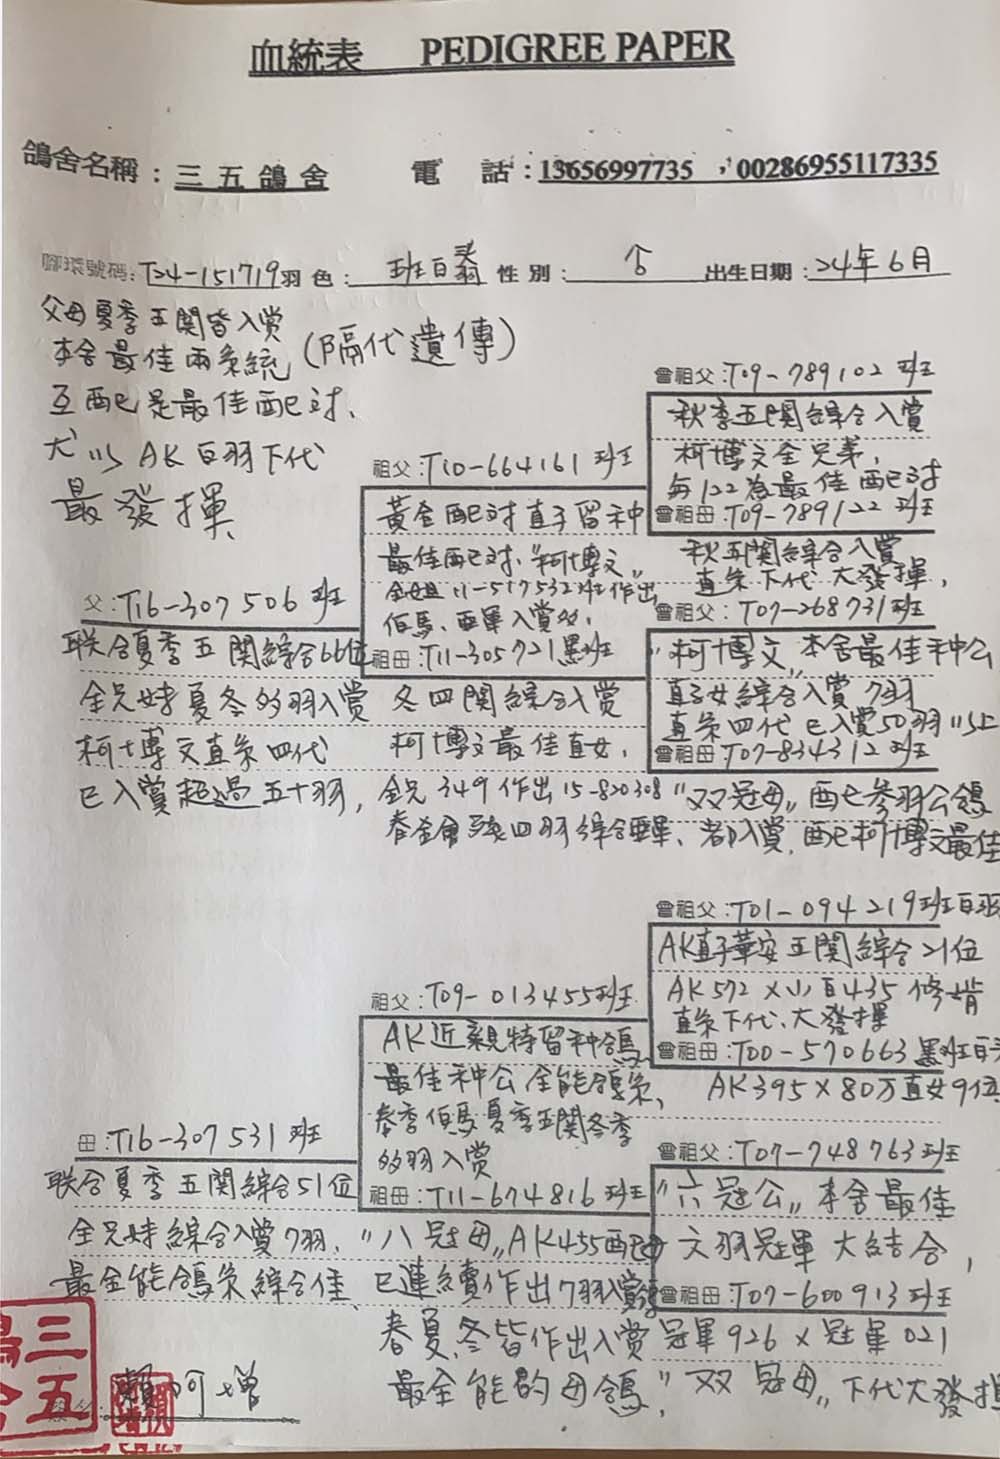 血統表 PEDIGREE PAPER
鴿舍名稱：三五鴿舍 電話：13656997735，00286955117335
腳環號碼：T24-151719 羽色：班白翁 性別： 出生日期：24年6月
父母夏季五関皆入赏
本舍最佳兩条統（隔代遺傳）
互配是最佳配对、
尤以AK白羽下代
最發揮
父：T16-307506 班
联合夏季五関綜合66位
全兄妹夏冬多羽入賞
柯博文直条四代
已入賞超過五十羽，
祖父：T10-664161 班
黃金配对直子留种
最佳配对、"柯博文"
全姐11-517532班作出
伯馬、亜軍入賞多，
祖母：T11-305721黑班
冬四関綜合入賞
柯博文最佳直女，
全兄349作出15-820308"双冠母"配参羽公鴿
春金會 四羽綜合亜軍、都入賞，配柯博文最佳
曾祖父：T09-789102 班
秋季五関綜合入賞
柯博文全兄弟，
与122為最佳配对
曾祖母：T09-789122 班
秋五関綜合入賞
直条下代大發揮，
曾祖父：T07-268731班
"柯博文"本舍最佳种公
直子女綜合入賞7羽
直条四代已入賞50羽以上
曾祖母：T07-834312班
母：T16-307531 班
联合夏季五関綜合51位
全兄妹綜合入賞7羽，
最全能鴿条綜合佳
祖父：T09-013455班
AK近親特留种鴿
最佳种公全能鴿条，
春季伯馬夏季五関冬季
多羽入賞
祖母：T11-674816班
"八冠母"AK455配
已連續作出7羽入賞
春夏、冬皆作出入賞
最全能的母鴿，
曾祖父：T01-094219班白羽
AK直子華安五関綜合21位
AK572×小白435
直条下代、大發揮
曾祖母：T00-570663黑班白
AK395×80万直女9位
曾祖父：T07-748763班
"六冠公"本舍最佳
文羽冠軍大結合，
曾祖母：T07-600913班
冠軍926×冠軍021
"双冠母"下代大發揮
賴阿增
三五鴿舍